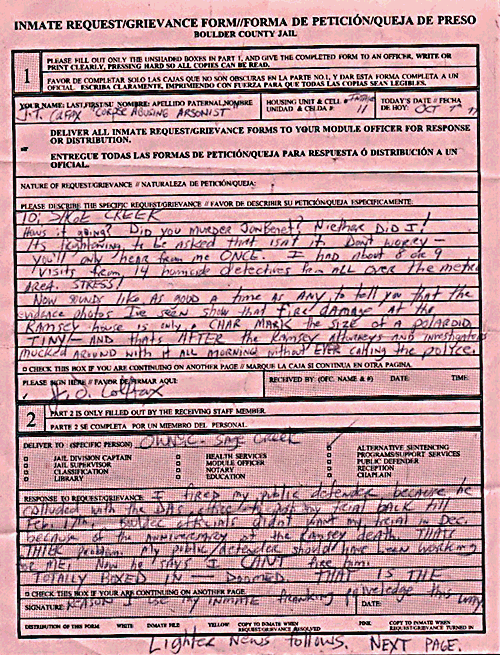 INMATE REQUEST/GRIEVANCE FORM//FORMA DE PETICIÓN/QUEJA DE PRESO
BOULDER COUNTY JAIL
1
PLEASE FILL OUT ONLY THE UNSHADED BOXES IN PART 1, AND GIVE THE COMPLETED FORM TO AN OFFICER. WRITE OR
PRINT CLEARLY, PRESSING HARD SO ALL COPIES CAN BE READ.
FAVOR DE COMPLETAR SOLO LAS CAJAS QUE NO SON OBSCURAS EN LA PARTE NO.1, Y DAR ESTA FORMA COMPLETA A UN
OFICIAL. ESCRIBA CLARAMENTE, IMPRIMIENDO CON FUERZA PARA QUE TODAS LAS COPIAS SEAN LEGIBLES.
YOUR NAME: LAST,FIRST/SU NOMBRE: APELLIDO PATERNAL,NOMBRE
J.T. Colfax Corpse Abusing Arsonist
HOUSING UNIT & CELL #
UNIDAD & CELDA #: 11
TODAY'S DATE // FECHA
DE HOY: Oct 7th 97
DELIVER ALL INMATE REQUEST/GRIEVANCE FORMS TO YOUR MODULE OFFICER FOR RESPONSE
OR DISTRIBUTION.
or
ENTREGUE TODAS LAS FORMAS DE PETICIÓN/QUEJA PARA RESPUESTA Ó DISTRIBUCIÓN A UN
OFICIAL.
NATURE OF REQUEST/GRIEVANCE // NATURALEZA DE PETICIÓN/QUEJA:
PLEASE DESCRIBE THE SPECIFIC REQUEST/GRIEVANCE // FAVOR DE DESCRIBIR SU PETICIÓN/QUEJA ESPECIFICAMENTE:
TO: CREEK
Hows it going? Did you murder JonBenet? Niether Did I!
Its frightening to be asked that isn't it Don't worry —
you'll only hear from me ONCE. I had about 8 or 9
visits from 14 homicide detectives from ALL over the metro
AREA. STRESS!
Now sounds like as good a time as ANY to tell you that the
evidence photos I've seen show that fire damage at the
Ramsey house is only a CHAR MARK the size of a POLAROID
TINY — AND thats AFTER the Ramsey Attorneys and investigators
mucked around with it ALL morning without EVER calling the police.
□ CHECK THIS BOX IF YOU ARE CONTINUING ON ANOTHER PAGE // MARQUE LA CAJA SI CONTINUA EN OTRA PAGINA.
PLEASE SIGN HERE // FAVOR DE FIRMAR AQUI:
J.T. Colfax
RECEIVED BY: (OFC. NAME & #) DATE: TIME:
2
PART 2 IS ONLY FILLED OUT BY THE RECEIVING STAFF MEMBER.
PARTE 2 SE COMPLETA POR UN MIEMBRO DEL PERSONAL.
DELIVER TO: (SPECIFIC PERSON) Creek
□ JAIL DIVISION CAPTAIN
□ JAIL SUPERVISOR
□ CLASSIFICATION
□ LIBRARY
□ HEALTH SERVICES
□ MODULE OFFICER
□ NOTARY
□ EDUCATION
□ ALTERNATIVE SENTENCING
□ PROGRAMS/SUPPORT SERVICES
□ PUBLIC DEFENDER
□ RECEPTION
□ CHAPLAIN
RESPONSE TO REQUEST/GRIEVANCE: I fired my public defender because he
colluded with the DAs office to put my trial back till
Feb. 17th. Boulder officials didn't want my trial in Dec.
because of the anniversary of the Ramsey death. THATS
THIER problem. My public defender should have been working
for ME! Now he says I CAN'T fire him.
TOTALLY BOXED IN — DOOMED. THAT IS THE
□ CHECK THIS BOX IF YOUR ARE CONTINUING ON ANOTHER PAGE.
SIGNATURE: REASON I use my inmate franking priveledge this way.
DATE:
DISTRIBUTION OF THIS FORM WHITE INMATE FILE YELLOW COPY TO INMATE WHEN REQUEST/GRIEVANCE RESOLVED PINK COPY TO INMATE WHEN REQUEST/GRIEVANCE TURNED IN
Lighter News follows. NEXT PAGE.